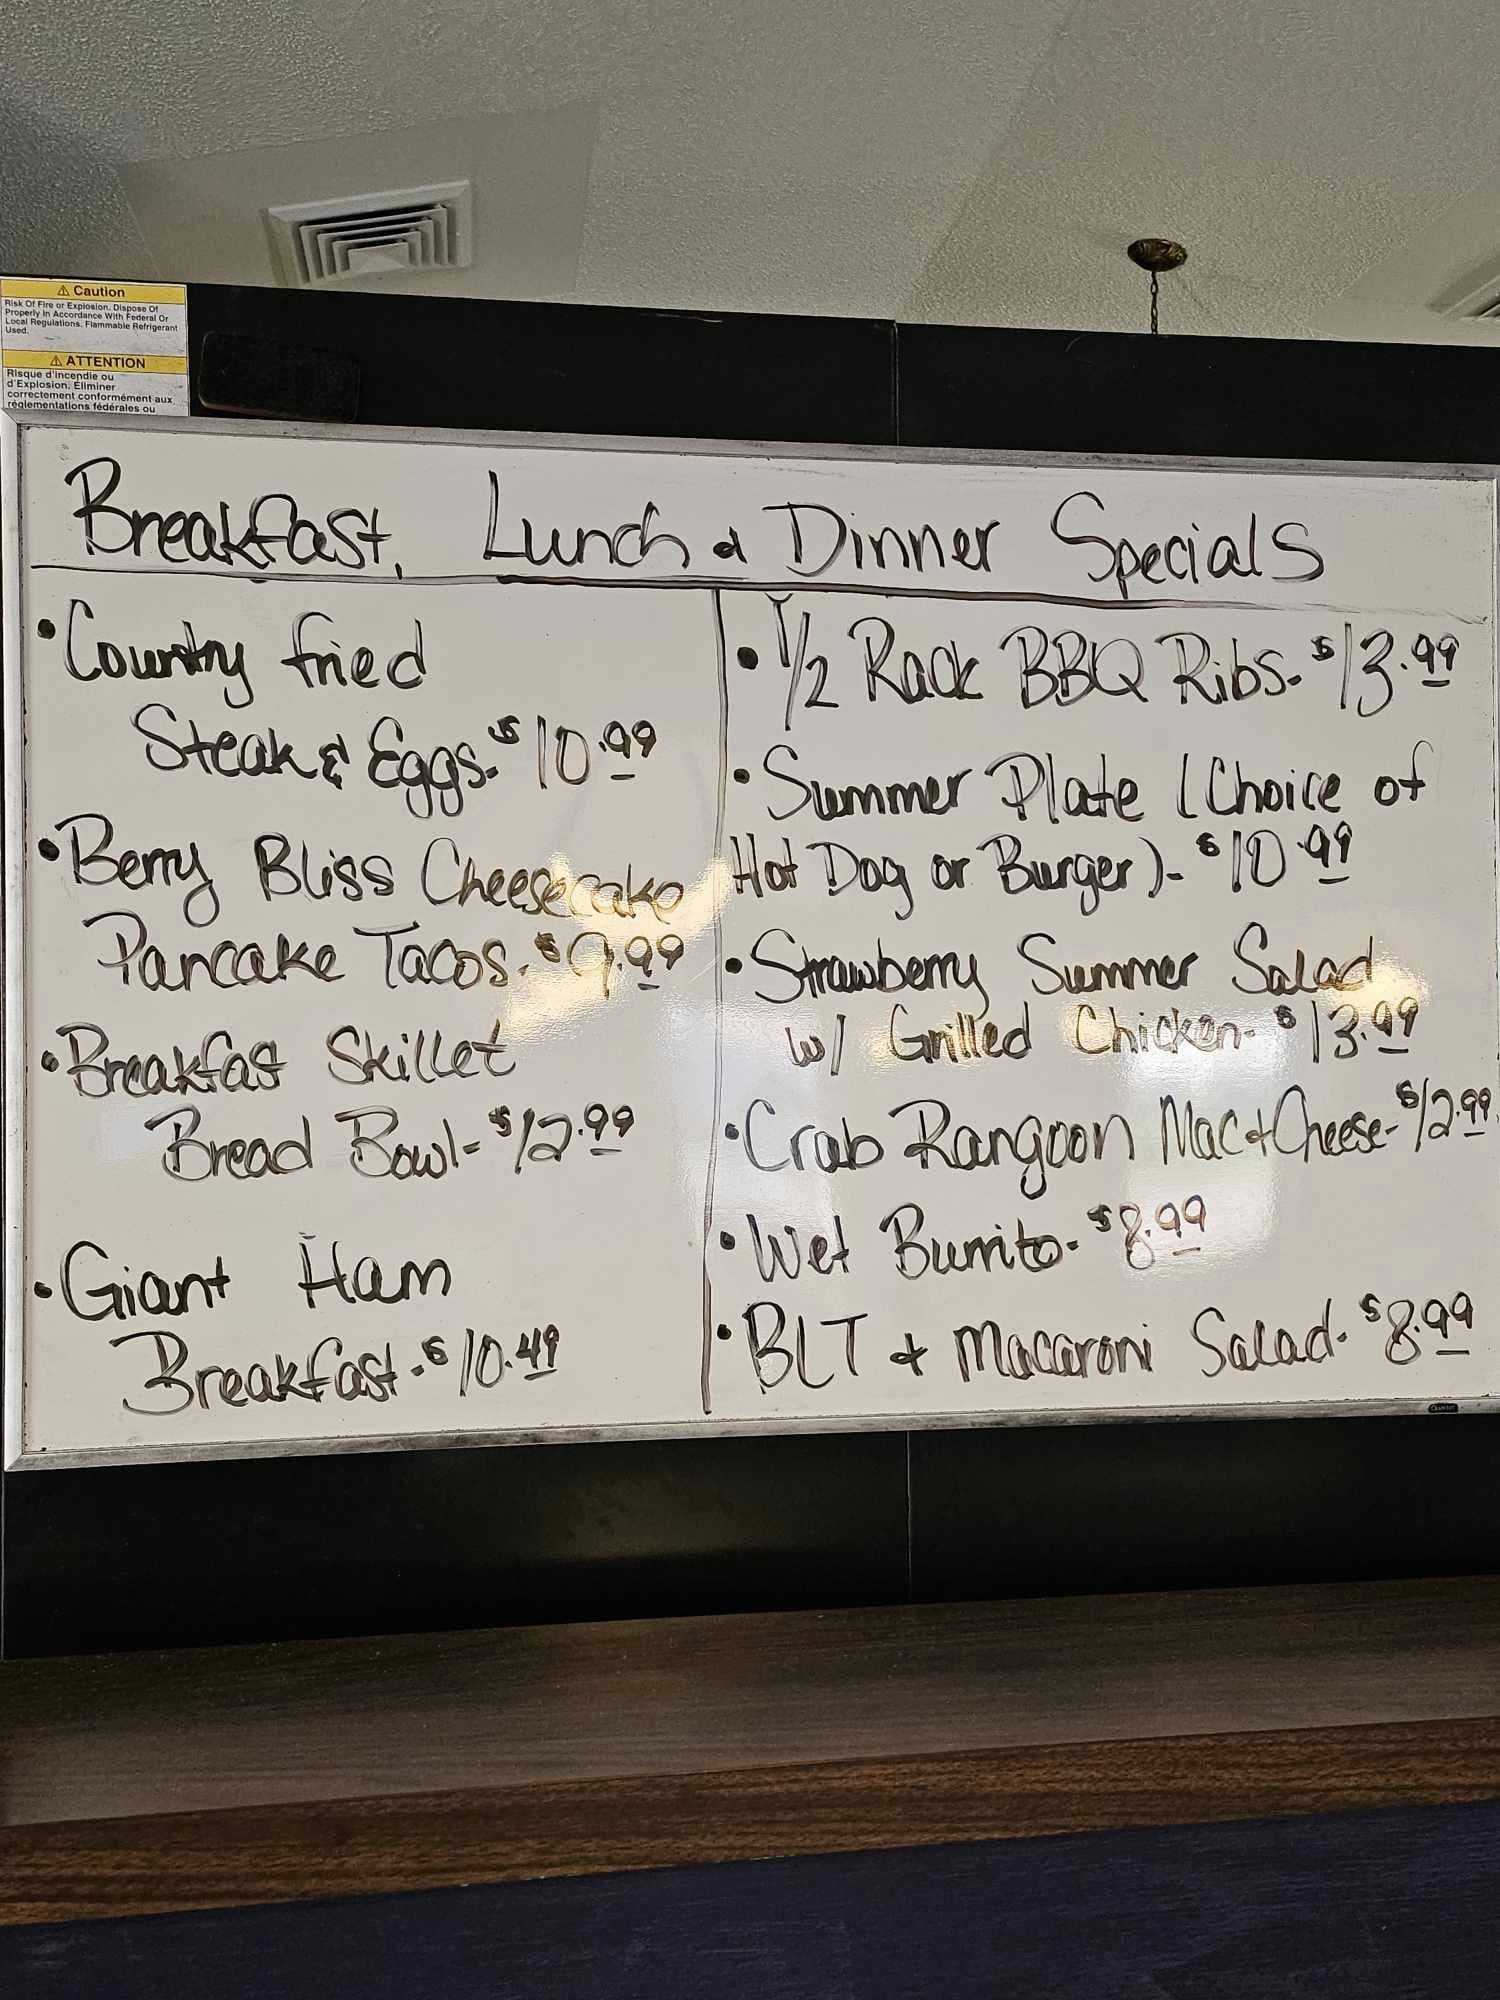 ⚠ Caution
Risk Of Fire or Explosion. Dispose Of
Properly In Accordance With Federal Or
Local Regulations. Flammable Refrigerant
Used.
⚠ ATTENTION
Risque d'incendie ou
d'Explosion. Éliminer
correctement conformément aux
réglementations fédérales ou
Breakfast, Lunch & Dinner Specials
• Country fried
Steak & Eggs - $10.99
• Berry Bliss Cheesecake
Pancake Tacos - $9.99
• Breakfast Skillet
Bread Bowl - $12.99
• Giant Ham
Breakfast - $10.49
• 1/2 Rack BBQ Ribs - $13.99
• Summer Plate (Choice of
Hot Dog or Burger) - $10.99
• Strawberry Summer Salad
w/ Grilled Chicken - $13.99
• Crab Rangoon Mac & Cheese - $12.99
• Wet Burrito - $8.99
• BLT & Macaroni Salad - $8.99
Quartet